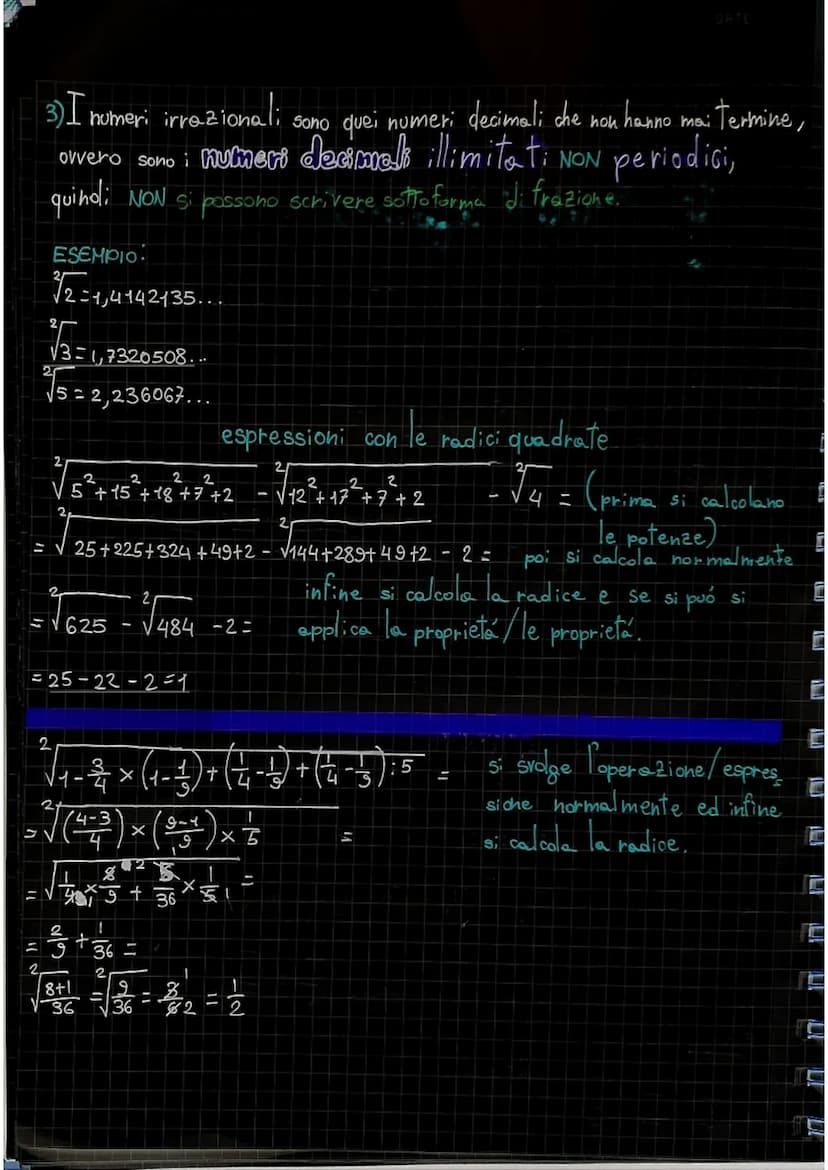 3) I numeri irrazionali sono quei numeri decimali che non hanno mai termine,
ovvero sono i numeri decimali illimitati NON periodici,
quindi NON si possono scrivere sottoforma di frazione.
ESEMPIO:
²√2=1,4142135...
²√3=1,7320508...
²√5=2,236067...
espressioni con le radici quadrate
²√(5²+15²+18²+7²+2) - ²√(12²+17²+7²+2) - ²√4 = (prima si calcolano
le potenze)
= ²√(25+225+324+49+2) - ²√(144+289+49+2) - 2 = poi si calcola normalmente
infine si calcola la radice e se si puó si
= ²√625 - ²√484 - 2 = applica la proprietá/le proprietá.
= 25-22-2=1
²√(1-3/4×(1-1/9)+(1/4-1/9)+(1/4-1/9):5) = si svolge l'operazione/espres
sione normalmente ed infine
= ²√((4-3/4)×(9-1/9)×1/5) =
si calcola la radice.
= √(1/4×8/9+5/36×1/5) =
= 2/9+1/36=
²√(8+1/36) = ²√(9/36) = 3/6 = 1/2